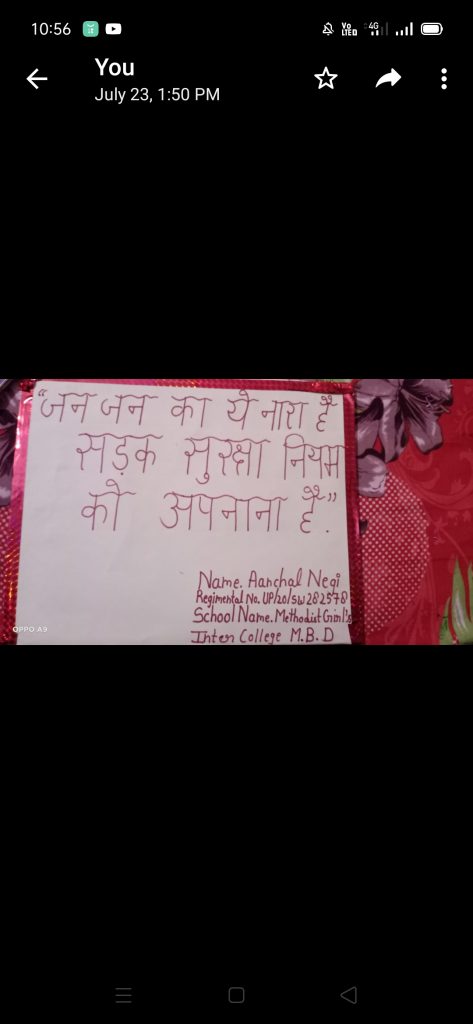 10:56
Vo LTED 4G
You
July 23, 1:50 PM
“जन जन का ये नारा है
सड़क सुरक्षा नियम
को अपनाना है”.
Name. Aanchal Negi
Regimental No. UP/20/SW282578
School Name. Methodist Girl's
Inter College M.B.D
OPPO A9